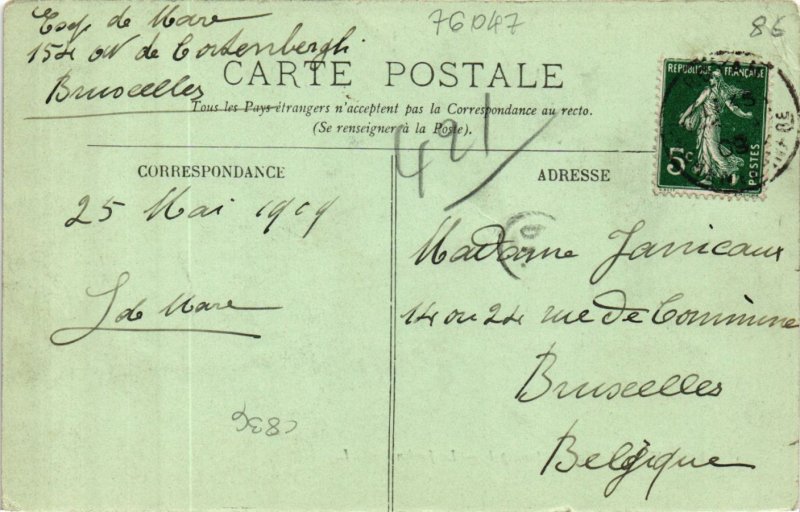 Exp. de Mare
154 av de Cortenbergh
Bruxelles
76047
86
CARTE POSTALE
Tous les Pays étrangers n'acceptent pas la Correspondance au recto.
(Se renseigner à la Poste).
421
CORRESPONDANCE
ADRESSE
REPUBLIQUE FRANÇAISE
5c
POSTES
25 Mai 1909
J de Mare
Madame
14 ou 24 rue de Commune
Bruxelles
Belgique
C836